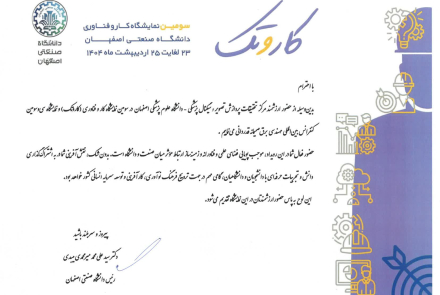 سومین نمایشگاه کار و فناوری
دانشگاه صنعتی اصفهان
۲۳ لغایت ۲۵ اردیبهشت ماه ۱۴۰۴
دانشگاه
صنعتی
اصفهان
کاروتک
با احترام
بدین‌وسیله از حضور ارزشمند مرکز تحقیقات پردازش تصویر و سیگنال پزشکی - دانشگاه علوم پزشکی اصفهان در سومین نمایشگاه کار و فناوری (کاروتک) و نمایشگاه سی و سومین
کنفرانس بین‌المللی مهندسی برق صمیمانه قدردانی می‌نماییم.
حضور فعال شما در این رویداد، موجب پویایی فضای علمی و فناورانه و زمینه‌ساز ارتباط مؤثر میان صنعت و دانشگاه است. بدون شک، نقش‌آفرینی شما در به اشتراک‌گذاری
دانش و تجربیات حرفه‌ای با دانشجویان و دانشگاهیان، گامی مهم در جهت ترویج فرهنگ نوآوری، کارآفرینی و توسعه سرمایه انسانی کشور خواهد بود.
این لوح به پاس حضور ارزشمندتان در این نمایشگاه تقدیم می‌شود.
پیروز و سربلند باشید
دکتر سید علی محمد میرمحمدی میبدی
رئیس دانشگاه صنعتی اصفهان